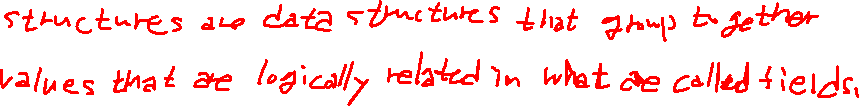 structures are data structures that group together
values that are logically related in what are called fields.